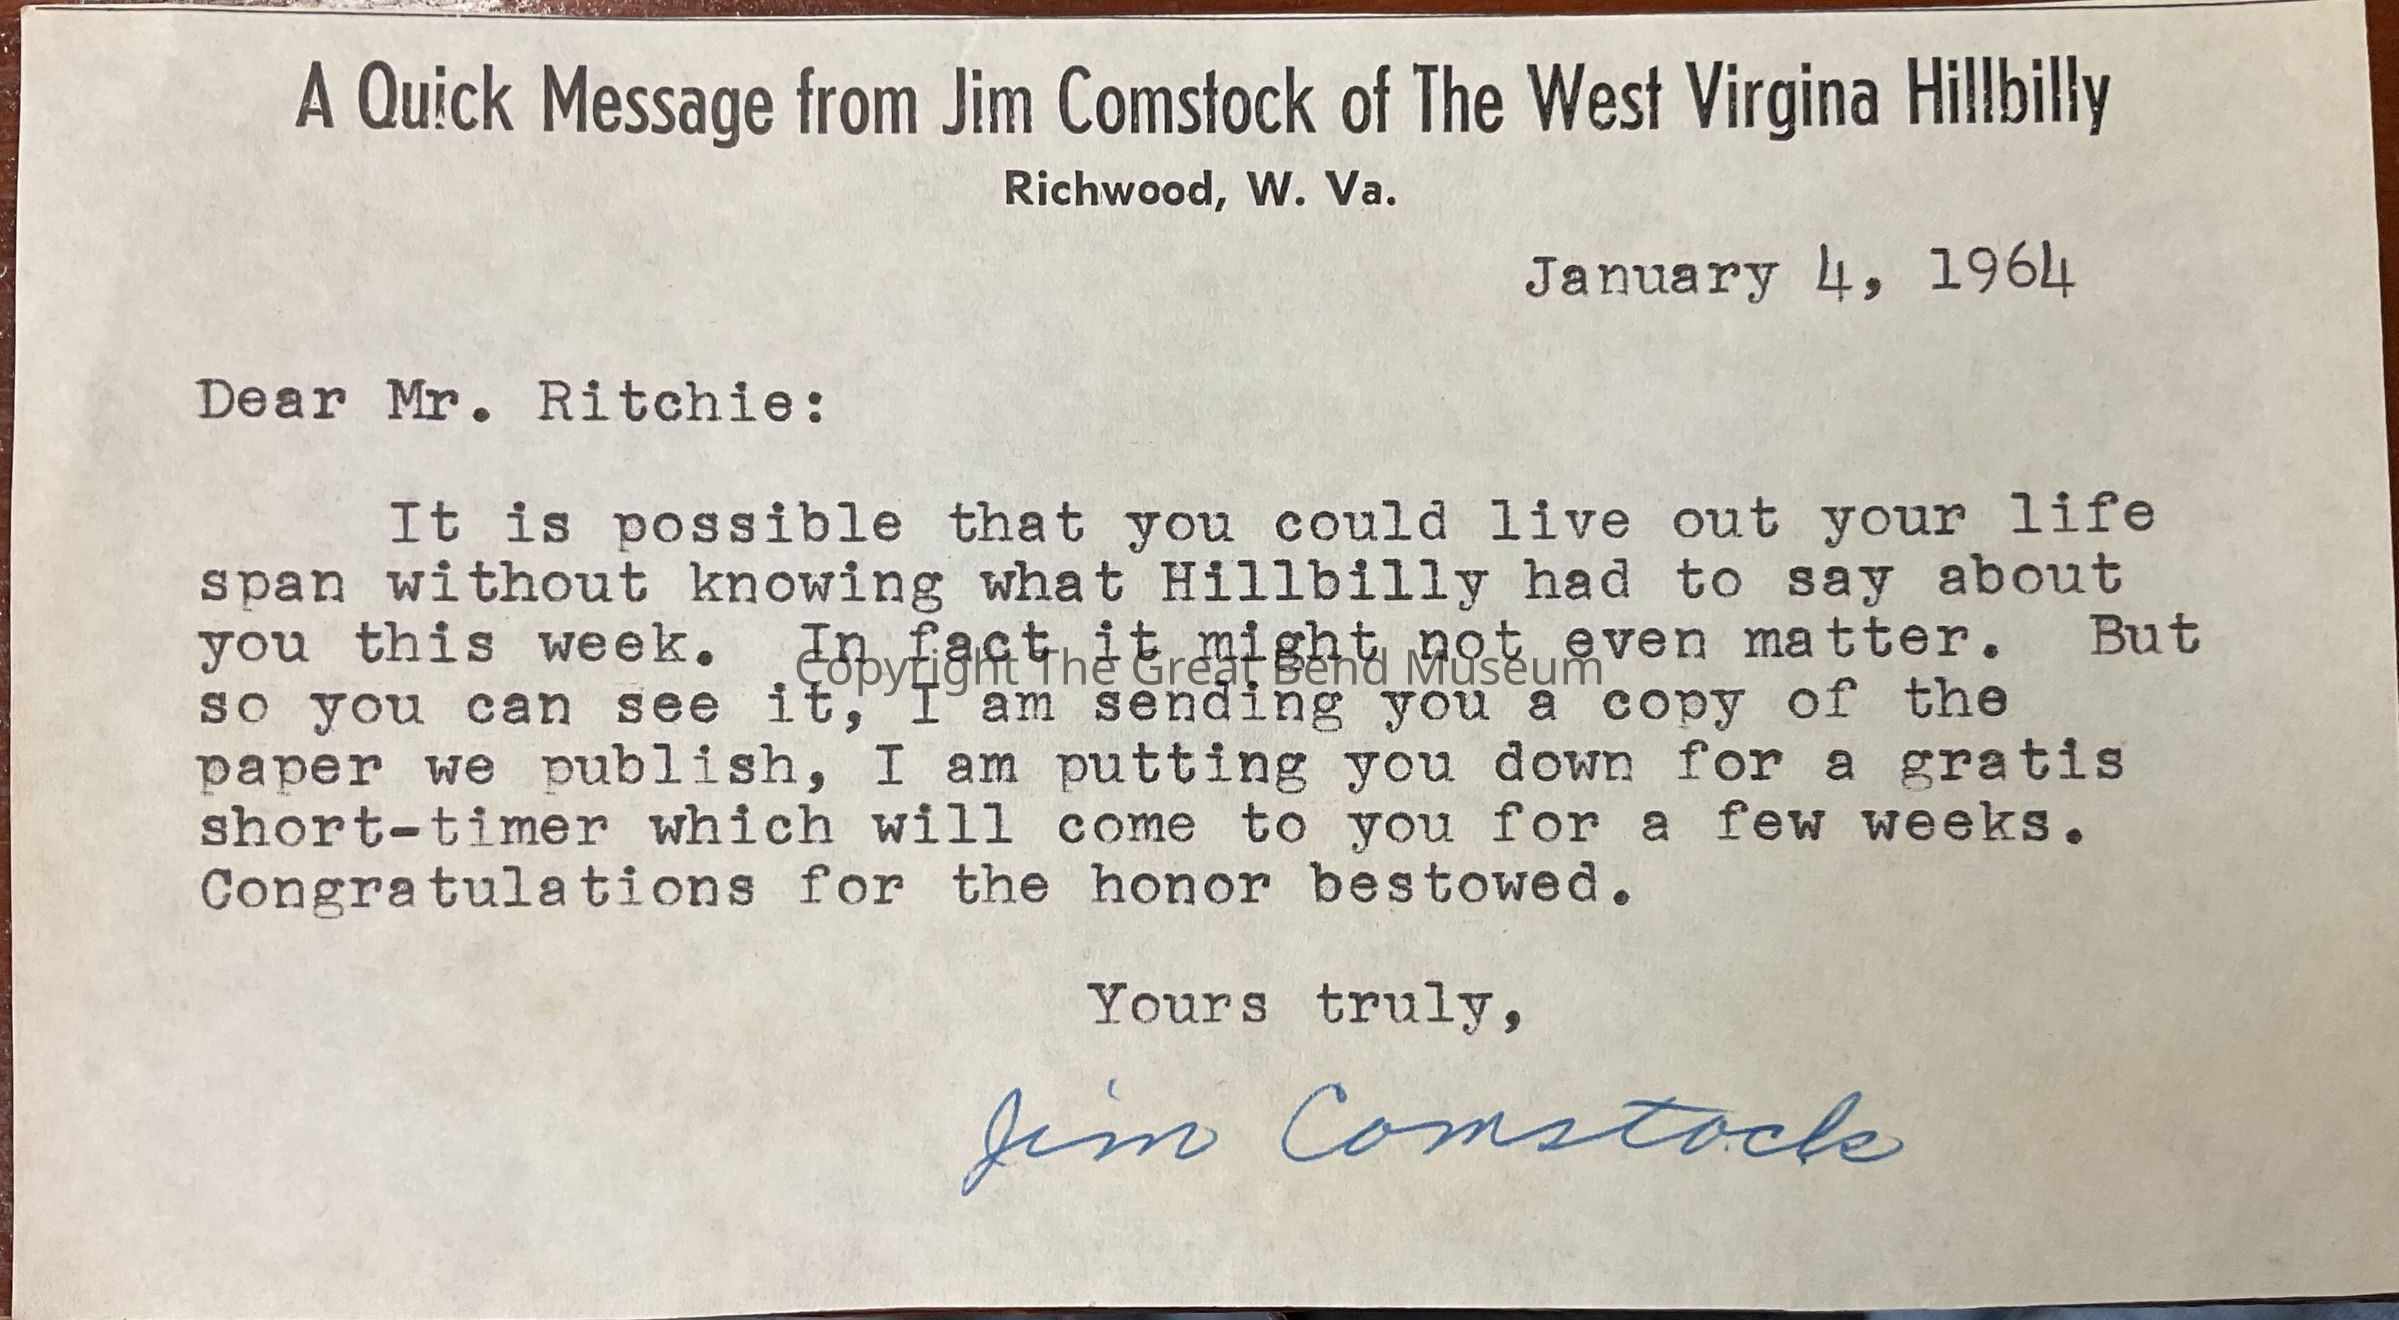 A Quick Message from Jim Comstock of The West Virgina Hillbilly
Richwood, W. Va.
January 4, 1964
Dear Mr. Ritchie:
It is possible that you could live out your life
span without knowing what Hillbilly had to say about
you this week. In fact it might not even matter. But
Copyright The Great Bend Museum
so you can see it, I am sending you a copy of the
paper we publish, I am putting you down for a gratis
short-timer which will come to you for a few weeks.
Congratulations for the honor bestowed.
Yours truly,
Jim Comstock